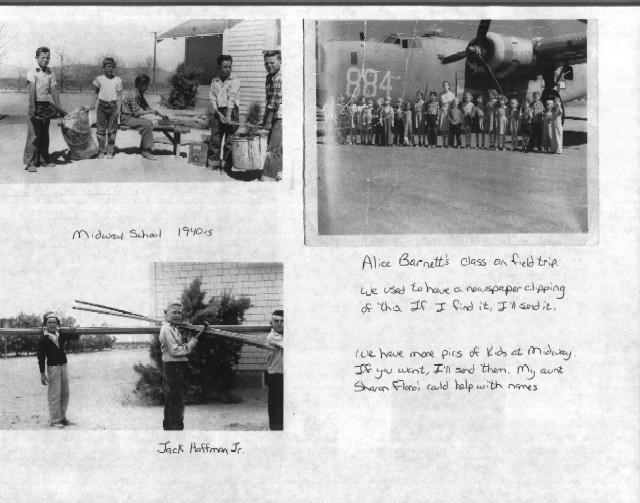 884
Midway School 1940's
Alice Barnett's class on field trip.
We used to have a newspaper clipping
of this. If I find it, I'll send it.
We have more pics of kids at Midway.
If you want, I'll send them. My aunt
Sharon could help with names
Jack Hoffman Jr.